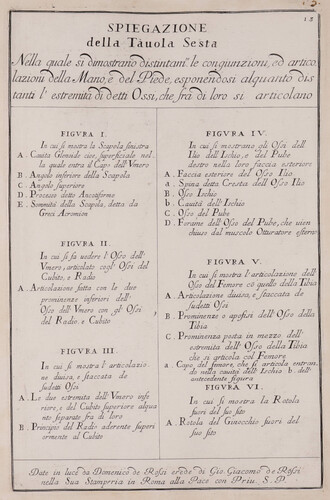 13
SPIEGAZIONE
della Tàuola Sesta
Nella quale si dimostrano distintam.te le congiunzioni, ed artico
lazioni della Mano, e del Piede, esponendosi alquanto dis
tanti l'estremità di detti Ossi, che frà di loro si articolano
FIGVRA I.
In cui si mostra la Scapola sinistra
A. Cauita Glenoide cioè, superficiale nel
la quale entra il Capo dell'Vmero
B. Angolo inferiore della Scapola
C. Angolo superiore
D. Processo detto Ancoiforme
E. Sommità della Scapola, detta da
Greci Acromion
FIGVRA II.
In cui si fa uedere l'Osso dell'
Vmero, articolato cogl'Ossi del
Cubito, e Radio
A. Articolazione fatta con le due
prominenze inferiori dell'
Osso dell'Vmero con gl'Ossi
del Radio e Cubito
FIGVRA III.
In cui si mostra l'articolazio
ne diuisa, e staccata de
sudetti Ossi
A. Le due estremità dell'Vmero infe
riore, e del Cubito superiore alqua
nto separate frà di loro
B. Principio del Radio aderente superi
ormente al Cubito
FIGVRA IV.
In cui si mostrano gl'Ossi dell'
Ilio dell'Ischio, e del Pube
destro nella loro faccia esteriore
A. Faccia esteriore del Osso Ilio
a. Spina detta Cresta dell'Osso Ilio
B. Osso Ischio
b. Cauità dell'Ischio
C. Osso del Pube
D. Forame dell'Osso del Pube, che uien
chiuso dal muscolo Otturatore esterno
FIGVRA V.
In cui si mostra l'articolazione dell'
Osso del Femore cō quello della Tibia
A. Articolazione diuisa, e staccata de
sudetti Ossi
B. Prominenze o apofisi dell'Osso della
Tibia
C. Prominenza posta in mezzo dell'
estremità dell'Osso della Tibia
che si articola col Femore
a. Capo del femore, che si articola entran.
nella cauità dell'Ischio b. dell'
antecedente figura
FIGVRA VI.
In cui si mostra la Rotola
fuori del suo sito
A. Rotola del Ginocchio fuori del
suo sito
Date in luce da Domenico de Rossi erede di Gio. Giacomo de Rossi
nella Sua Stamperia in Roma alla Pace con Priu. S. P.